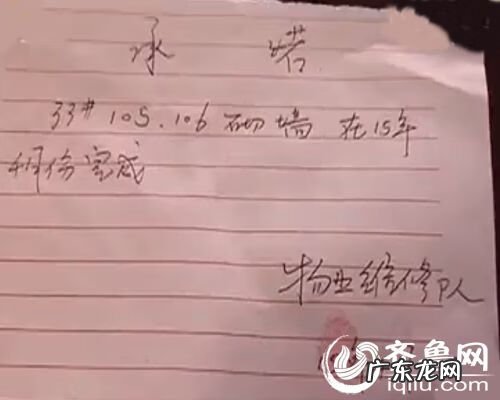 承 喏
33# 105.106 砌墙 在15年
物业维修队
齐鲁网
广东龙网
iqilu.com